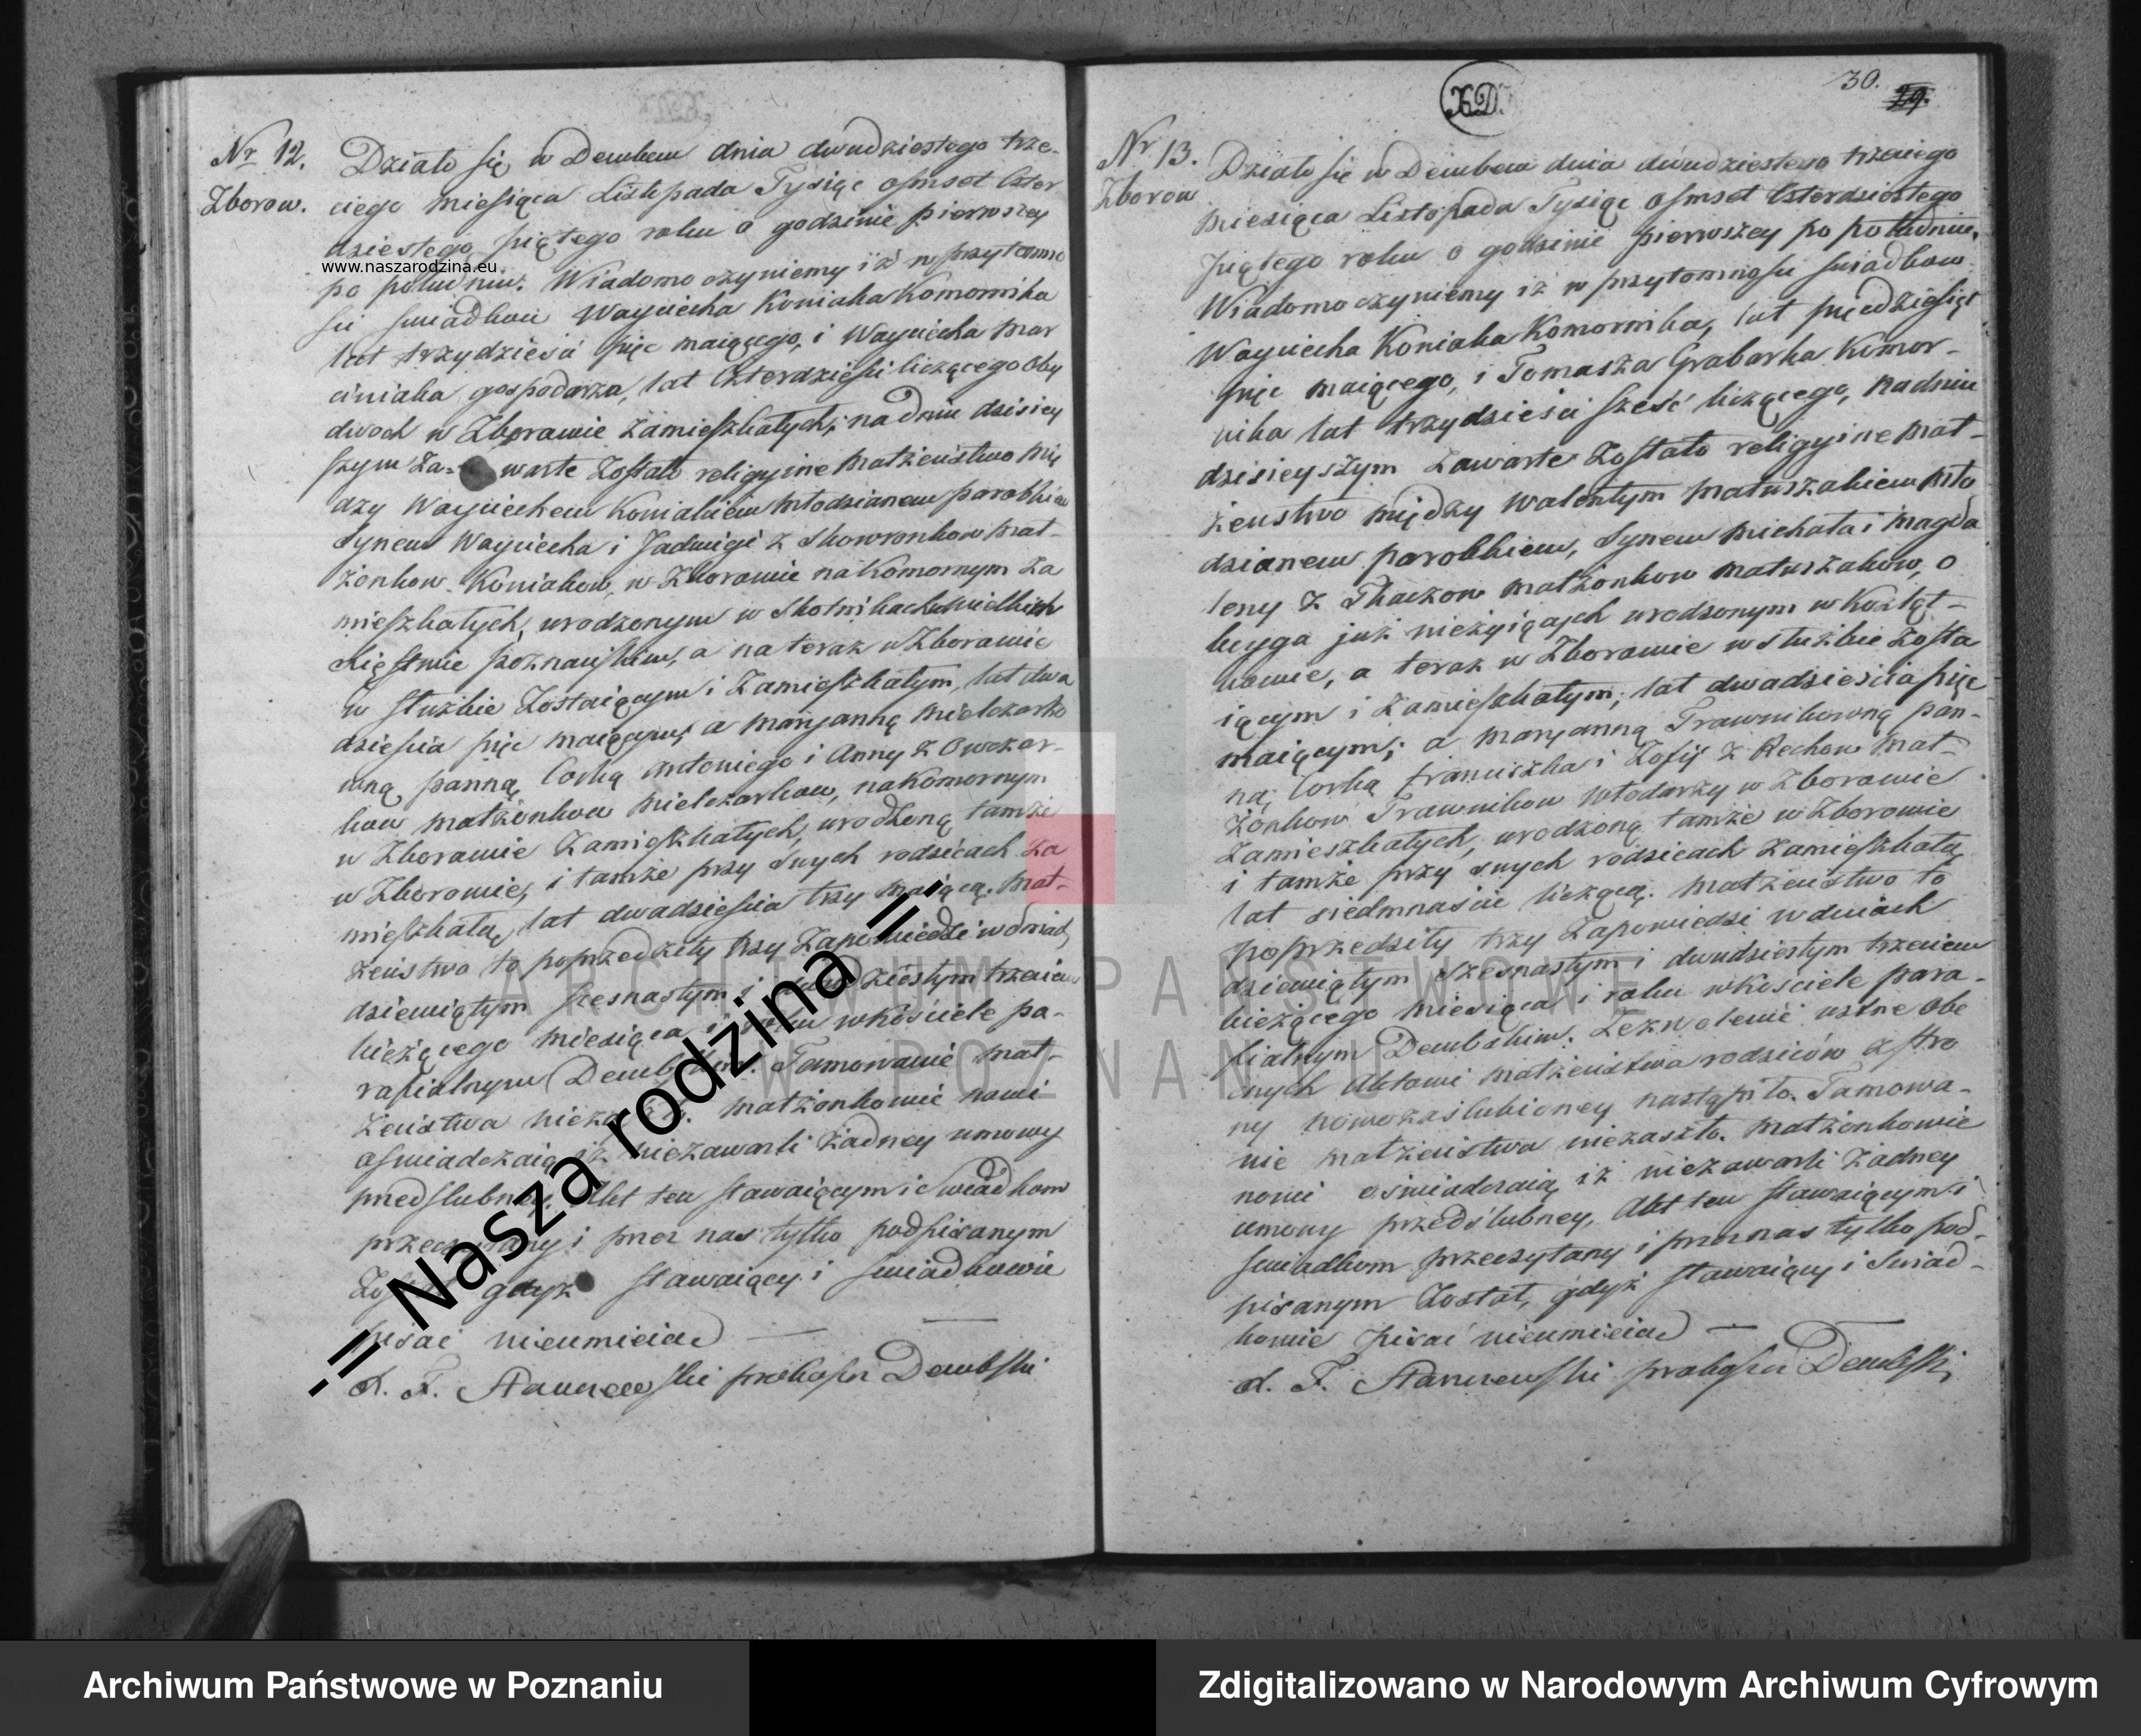 Nr 12.
Zborow.
Działo się w Dembem dnia dwudziestego trze-
ciego miesiąca Listopada Tysiąc osmset Czter
dziestego piątego roku o godzinie pierwszey
www.naszarodzina.eu
po południu. Wiadomo czyniemy iż w przytomno
sci swiadkow Woyciecha Koniaka Komornika
lat trzydziesci pięc maiącego, i Woyciecha Mar
ciniaka gospodarza, lat Czterdziesci liczącego Oby
dwoch w Zborowie zamieszkałych; na dniu dzisiey
szym Za- warte Zostało religyine Małżeństwo mię
dzy Woyciechem Koniakiem Młodzianem parobkiem
Synem Woyciecha i Jadwigi z Skowronkow Mał-
żonkow Koniakow, w Zborowie na Komornym Za
mieszkałych, urodzonym w Skotnikach Wielkich
Xięstwie poznańskim, a na teraz w Zborowie
w służbie Zostaiącym i Zamieszkałym, lat dwa
dziescia pięc maiącym, a Maryanną Mielczarko
wną panną, Corką Antoniego i Anny z Owczar-
kow małżonkow Mielczarkow, na Komornym
w Zborowie Zamieszkałych, urodzoną tamże
w Zborowie, i tamże przy swych rodzicach Za
mieszkałą, lat dwadziescia trzy maiącą. Mał-
żeństwo to poprzedziły trzy Zapowiedzi w dniach
dziewiątym szesnastym i dwudziestym trzecim
bieżącego miesiąca i roku w kościele pa-
rafialnym Dembskim. Tamowanie Mał-
żeństwa niezaszło. Małżonkowie nowi
oświadczaią iż niezawarli żadney umowy
przedślubney. Akt ten stawaiącym i Swiadkom
przeczytany i przez nas tylko podpisanym
Został gdyż stawaiący i swiadkowie
pisac nieumieią
X. F. Stanczewski proboszcz Dembski
.:= Nasza rodzina =:.
KD.
30.
29.
Nr 13.
Zborow
Działo się w Dembem dnia dwudziestego trzeciego
Miesiąca Listopada Tysiąc osmset Czterdziestego
piątego roku o godzinie pierwszey po południu,
Wiadomo czyniemy iż w przytomności swiadkow
Woyciecha Koniaka Komornika, lat pięcdziesiąt
pięc maiącego, i Tomasza Grabarka Komor-
nika lat trzydziesci sześć liczącego, na dniu
dzisieyszym Zawarte Zostało religyine Mał-
żeństwo między Walentym Matuszakiem Mło
dzianem parobkiem, Synem Michała i Magda
leny z Tkaczow małżonkow Matuszakow, o
buyga już nieżyiących urodzonym w Koźląt-
kowie, a teraz w Zborowie w służbie Zosta
iącym i Zamieszkałym; lat dwadzieścia pięc
maiącym; a Maryanną Trawnikowną pan-
ną, Corką Franciszka i Zofij z Rechow Mał-
żonkow Trawnikow włodarzy w Zborowie
Zamieszkałych, urodzoną tamże w Zborowie
i tamże przy swych rodzicach Zamieszkałą
lat siedmnaście liczącą. Małżeństwo to
poprzedziły trzy Zapowiedzi w dniach
dziewiątym szesnastym i dwudziestym trzecim
bieżącego miesiąca i roku w kościele para-
fialnym Dembskim. Zezwolenie ustne Obe
cnych Aktowi małżeństwa rodziców z stro
ny nowozaslubioney nastąpiło. Tamowa-
nie małżeństwa niezaszło. Małżonkowie
nowi oświadczaią iż niezawarli żadney
umowy przedślubney, Akt ten stawaiącym i
swiadkom przeczytany i przez nas tylko pod-
pisanym Został, gdyż stawaiący i Swiad-
kowie pisać nieumieią
X. F. Stanczewski proboszcz Dembski
ARCHIWUM PAŃSTWOWE
W POZNANIU
Archiwum Państwowe w Poznaniu
Zdigitalizowano w Narodowym Archiwum Cyfrowym